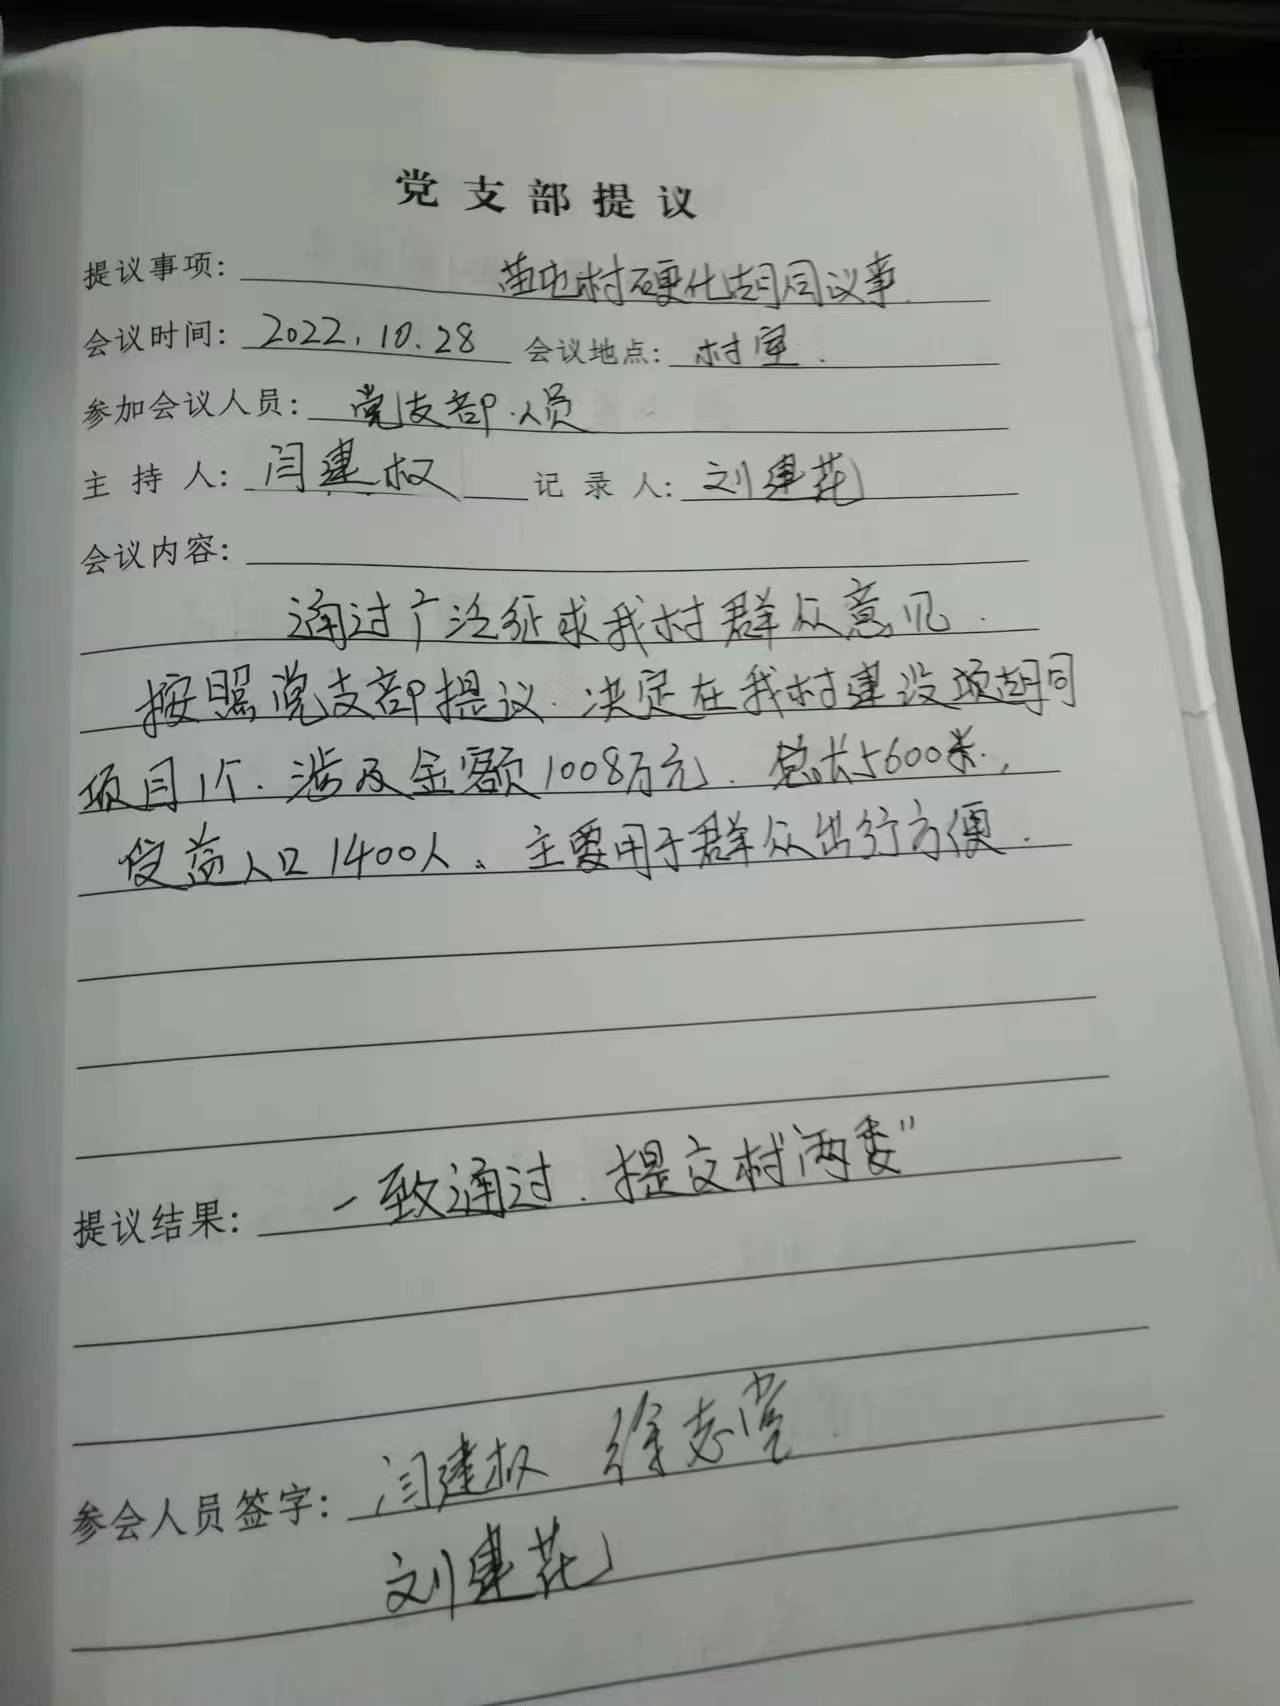 党支部提议
提议事项: 苗屯村硬化胡同议事.
会议时间: 2022.10.28 会议地点: 村室.
参加会议人员: 党支部人员
主持人: 闫建权 记录人: 刘建花
会议内容:
通过广泛征求我村群众意见.
按照党支部提议.决定在我村建设项胡同
项目1个.涉及金额1008万元.总长5600米,
受益人口1400人。主要用于群众出行方便.
提议结果: 一致通过.提交村"两委"
参会人员签字: 闫建权 徐志党
刘建花